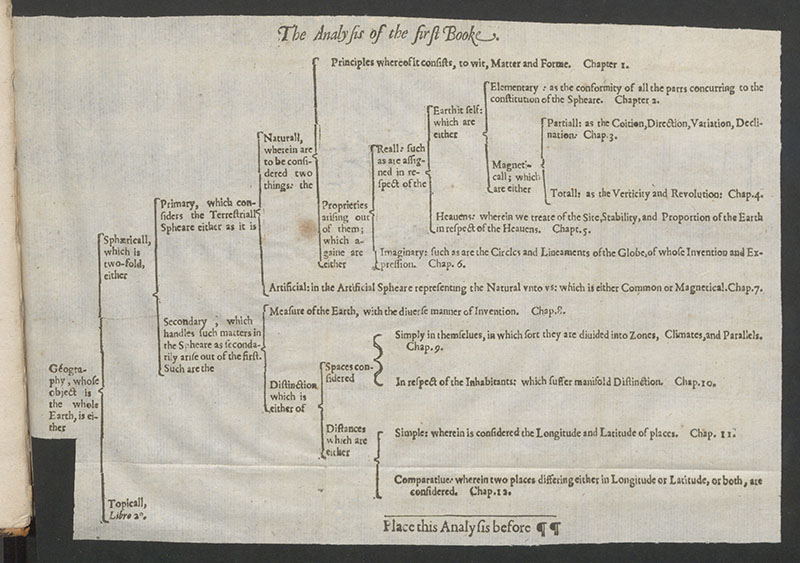 The Analysis of the first Booke.
Geogra-
phy, whose
object is
the whole
Earth, is ei-
ther
Sphæricall,
which is
two-fold,
either
Primary, which con-
siders the Terrestriall
Spheare either as it is
Naturall,
wherein are
to be consi-
dered two
things: the
Principles whereof it consists, to wit, Matter and Forme. Chapter 1.
Proprieties
arising out
of them;
which a-
gaine are
either
Reall: such
as are assig-
ned in re-
spect of the
Earth it self:
which are
either
Elementary: as the conformity of all the parts concurring to the
constitution of the Spheare. Chapter 2.
Magnet-
call; which
are either
Partiall: as the Coition, Direction, Variation, Decli-
nation. Chap. 3.
Totall: as the Verticity and Revolution: Chap. 4.
Heauens: wherein we treate of the Site, Stability, and Proportion of the Earth
in respect of the Heauens. Chapt. 5.
Imaginary: such as are the Circles and Lineaments of the Globe, of whose Invention and Ex-
pression. Chap. 6.
Artificial: in the Artificial Spheare representing the Natural vnto vs: which is either Common or Magnetical. Chap. 7.
Secondary, which
handles such matters in
the Spheare as seconda-
rily arise out of the first.
Such are the
Measure of the Earth, with the diuerse manner of Invention. Chap. 8.
Distinction,
which is
either of
Spaces con-
sidered
Simply in themselues, in which sort they are diuided into Zones, Climates, and Parallels.
Chap. 9.
In respect of the Inhabitants: which suffer manifold Distinction. Chap. 10.
Distances
which are
either
Simple: wherein is considered the Longitude and Latitude of places. Chap. 11.
Comparatiue: wherein two places differing either in Longitude or Latitude, or both, are
considered. Chap. 12.
Topicall,
Libro 2º.
Place this Analysis before ¶ ¶